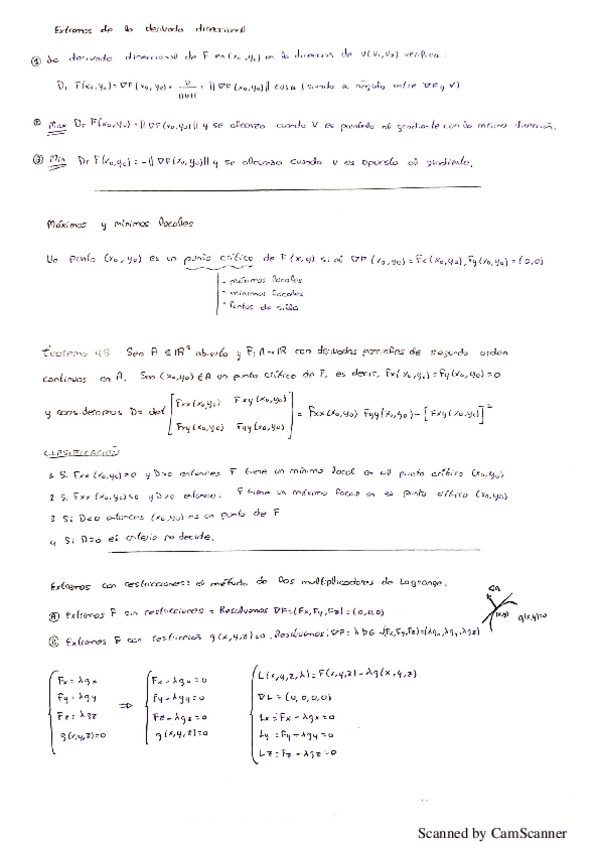 Extremos de la derivada direccional
① La derivada direccional de F en (x₀,y₀) en la dirección de V(v₁,v₂) verifica:
Dv F(x₀,y₀) = ∇F(x₀,y₀) · v/||v|| = ||∇F(x₀,y₀)|| cos α (siendo α ángulo entre ∇F y V)
② Max Dv F(x₀,y₀) = ||∇F(x₀,y₀)|| y se alcanza cuando V es paralelo al gradiente con la misma dirección.
③ Min Dv F(x₀,y₀) = -||∇F(x₀,y₀)|| y se alcanza cuando V es opuesto al gradiente.
Máximos y mínimos locales
Un punto (x₀,y₀) es un punto crítico de F(x,y) si el ∇F(x₀,y₀) = Fx(x₀,y₀), Fy(x₀,y₀) = (0,0)
- máximos locales
- mínimos locales
- Puntos de silla
Teorema 4.8 Sea A ⊆ ℝ² abierto y F: A → ℝ con derivadas parciales de segundo orden
continuas en A. Sea (x₀,y₀) ∈ A un punto crítico de F, es decir, Fx(x₀,y₀) = Fy(x₀,y₀) = 0
y consideremos D = det [Fxx(x₀,y₀) Fxy(x₀,y₀)
Fxy(x₀,y₀) Fyy(x₀,y₀)] = Fxx(x₀,y₀) Fyy(x₀,y₀) - [Fxy(x₀,y₀)]²
CLASIFICACIÓN
1. Si Fxx(x₀,y₀)>0 y D>0 entonces F tiene un mínimo local en el punto crítico (x₀,y₀)
2 Si Fxx(x₀,y₀)<0 y D>0 entonces F tiene un máximo local en el punto crítico (x₀,y₀)
3 Si D<0 entonces (x₀,y₀) es un punto de F
4 Si D=0 el criterio no decide.
Extremos con restricciones: el método de los multiplicadores de Lagrange.
Ⓐ Extremos F sin restricciones = Resolvemos ∇F=(Fx,Fy,Fz)=(0,0,0)
Ⓑ Extremos F con restricción g(x,y,z)=0. Resolvemos: ∇F = λ∇G → (Fx,Fy,Fz)=(λgx,λgy,λgz)
g(x,y)=0
Fx = λgx
Fy = λgy
Fz = λgz
g(x,y,z)=0
⇒
Fx - λgx = 0
Fy - λgy = 0
Fz - λgz = 0
g(x,y,z)=0
L(x,y,z,λ) = F(x,y,z) - λg(x,y,z)
∇L = (0,0,0,0)
Lx = Fx - λgx = 0
Ly = Fy - λgy = 0
Lz = Fz - λgz = 0
Scanned by CamScanner